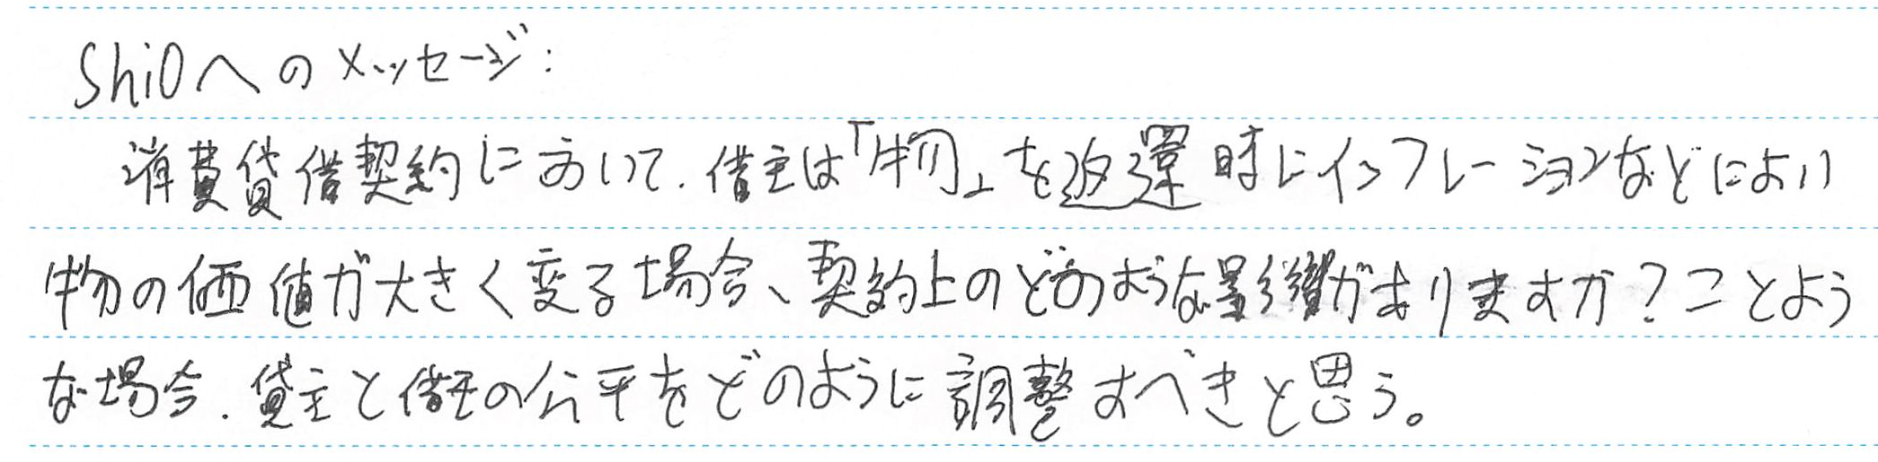 Shioへのメッセージ:
消費貸借契約において、借主は「物」を返還時にインフレーションなどにより
物の価値が大きく変る場合、契約上のどのような影響がありますか?ことよう
な場合、貸主と借主の公平をどのように調整すべきと思う。